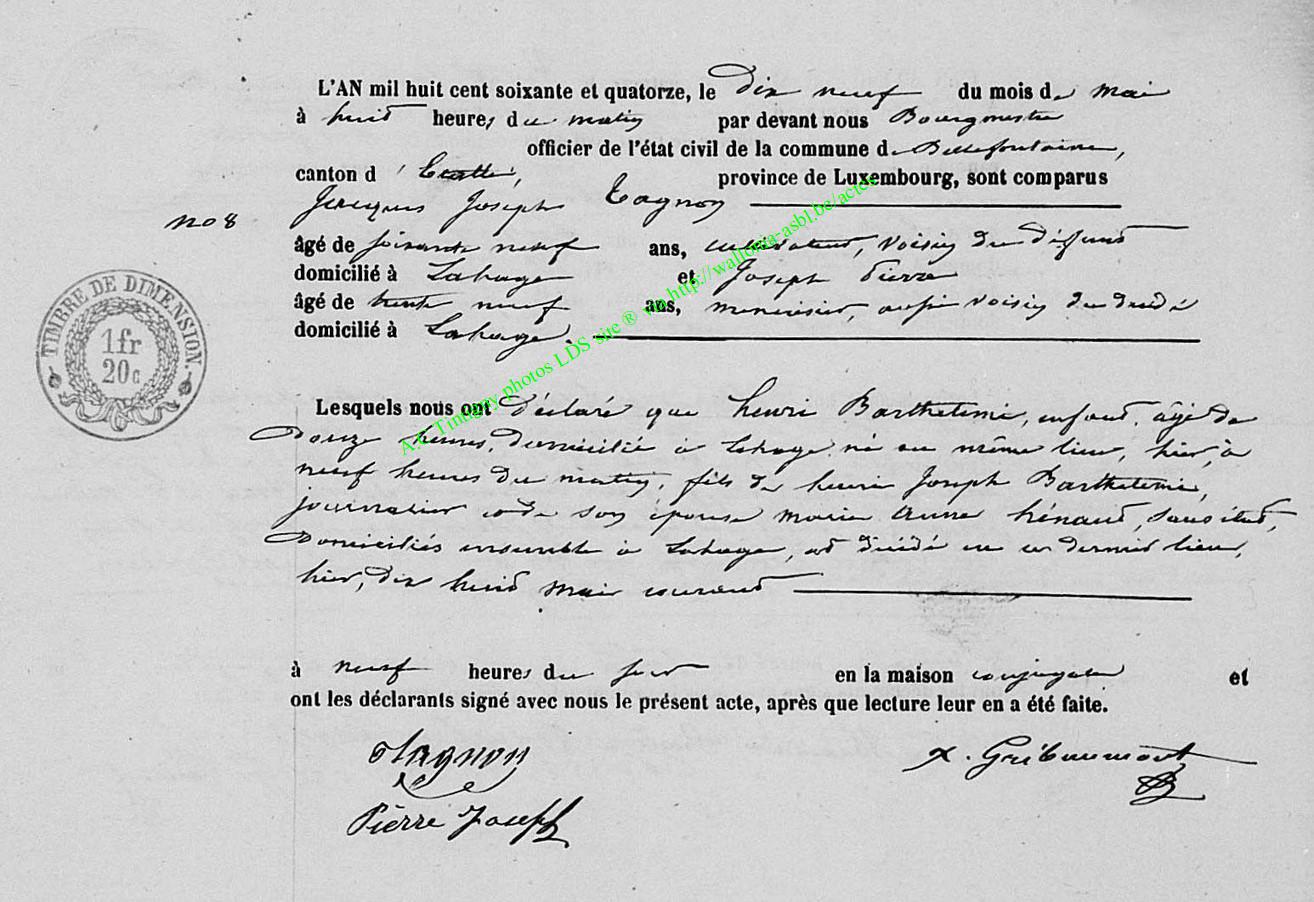 L'AN mil huit cent soixante et quatorze, le dix neuf du mois de mai
à huit heures du matin par devant nous Bourgmestre
officier de l'état civil de la commune de Bellefontaine,
canton d'Etalle, province de Luxembourg, sont comparus
no 8
Jacques Joseph Tagnon
âgé de soixante neuf ans, cultivateur, voisin du défunt
domicilié à Lahage et Joseph Pierre
âgé de trente neuf ans, menuisier, aussi voisin du décédé
domicilié à Lahage.
TIMBRE DE DIMENSION.
1 fr
20 c
Lesquels nous ont déclaré que henri Barthelimi, enfant, âgé de
douze heures, domicilié à Lahage né au même lieu, hier, à
neuf heures du matin, fils de henri Joseph Barthelimi,
journalier et de son épouse marie Anne hénaud, sans état,
domiciliés ensemble à Lahage, est décédé en ce dernier lieu,
hier, dix huit mai courant
à neuf heures du soir en la maison conjugale et
ont les déclarants signé avec nous le présent acte, après que lecture leur en a été faite.
Tagnon
X. Gribaumont
Pierre Joseph
A.C. Tintigny photos LDS site ® via http://wallonia-asbl.be/actes